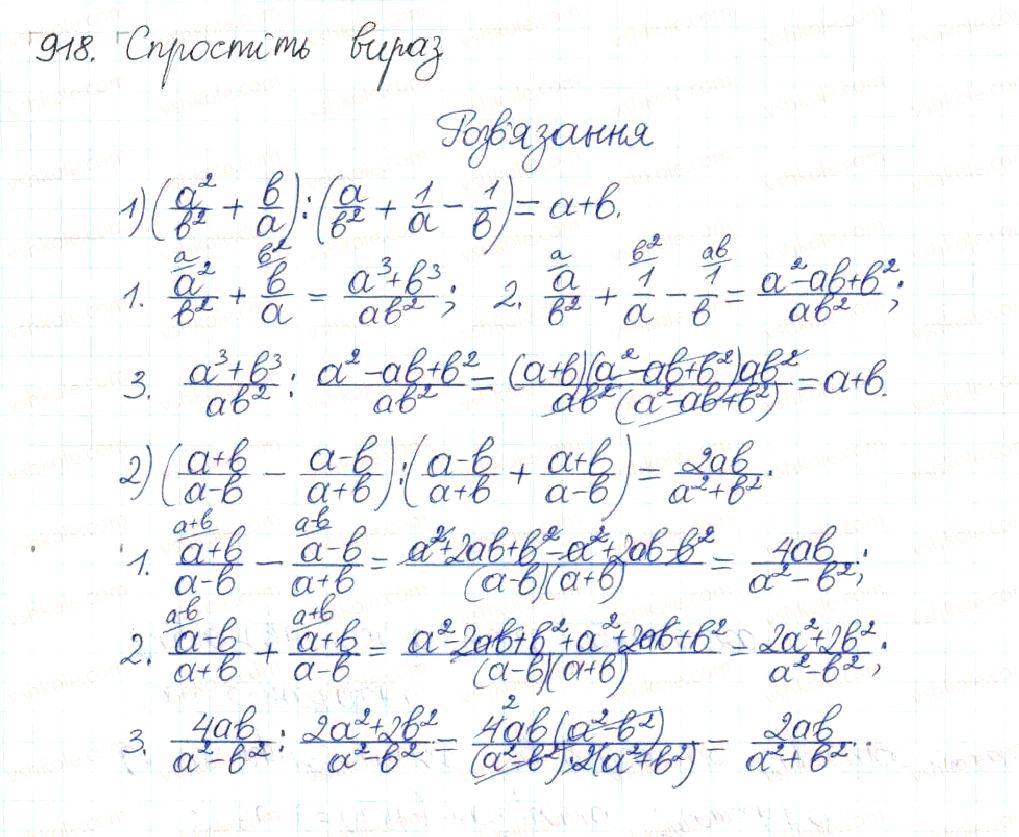 918. Спростіть вираз
Розв'язання
1) (a²/b² + b/a) : (a/b² + 1/a − 1/b) = a+b.
1. a²/b² + b/a = (a³+b³)/(ab²); 2. a/b² + 1/a − 1/b = (a²−ab+b²)/(ab²);
3. (a³+b³)/(ab²) : (a²−ab+b²)/(ab²) = ((a+b)(a²−ab+b²)ab²)/(ab²(a²−ab+b²)) = a+b.
2) ((a+b)/(a−b) − (a−b)/(a+b)) : ((a−b)/(a+b) + (a+b)/(a−b)) = 2ab/(a²+b²).
1. (a+b)/(a−b) − (a−b)/(a+b) = (a²+2ab+b²−a²+2ab−b²)/((a−b)(a+b)) = 4ab/(a²−b²);
2. (a+b)/(a+b) + (a+b)/(a−b) = (a²−2ab+b²+a²+2ab+b²)/((a−b)(a+b)) = (2a²+2b²)/(a²−b²);
3. 4ab/(a²−b²) : (2a²+2b²)/(a²−b²) = (4ab(a²−b²))/((a²−b²)·2(a²+b²)) = 2ab/(a²+b²).